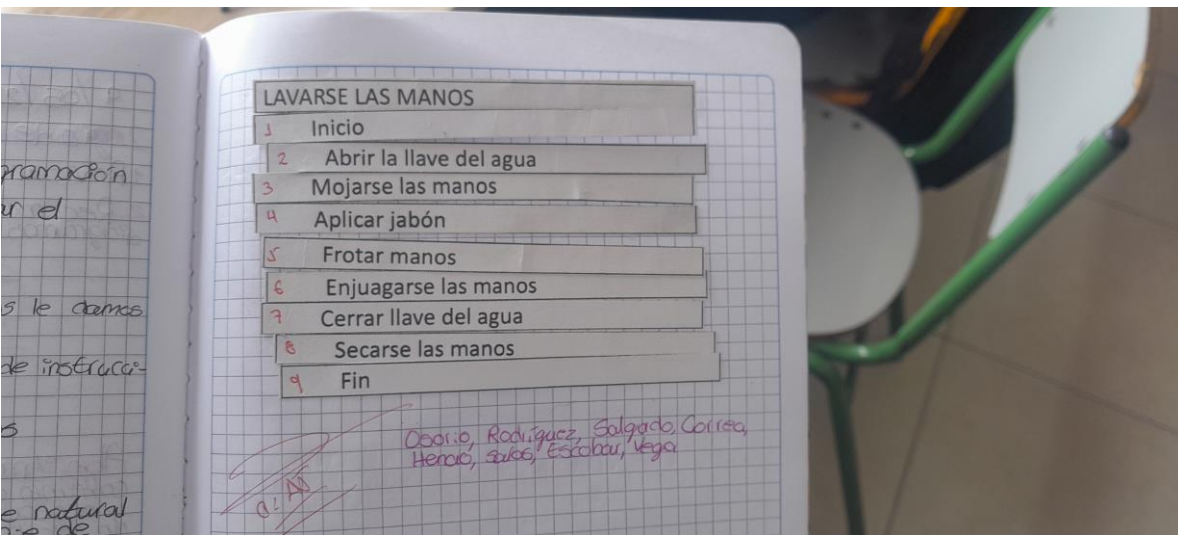 ramación
ur el
s le damos
de instrucci-
s
e natural
de
LAVARSE LAS MANOS
1 Inicio
2 Abrir la llave del agua
3 Mojarse las manos
4 Aplicar jabón
5 Frotar manos
6 Enjuagarse las manos
7 Cerrar llave del agua
8 Secarse las manos
9 Fin
Osorio, Rodríguez, Salgado, Correa,
Henao, Salas, Escobar, Vega